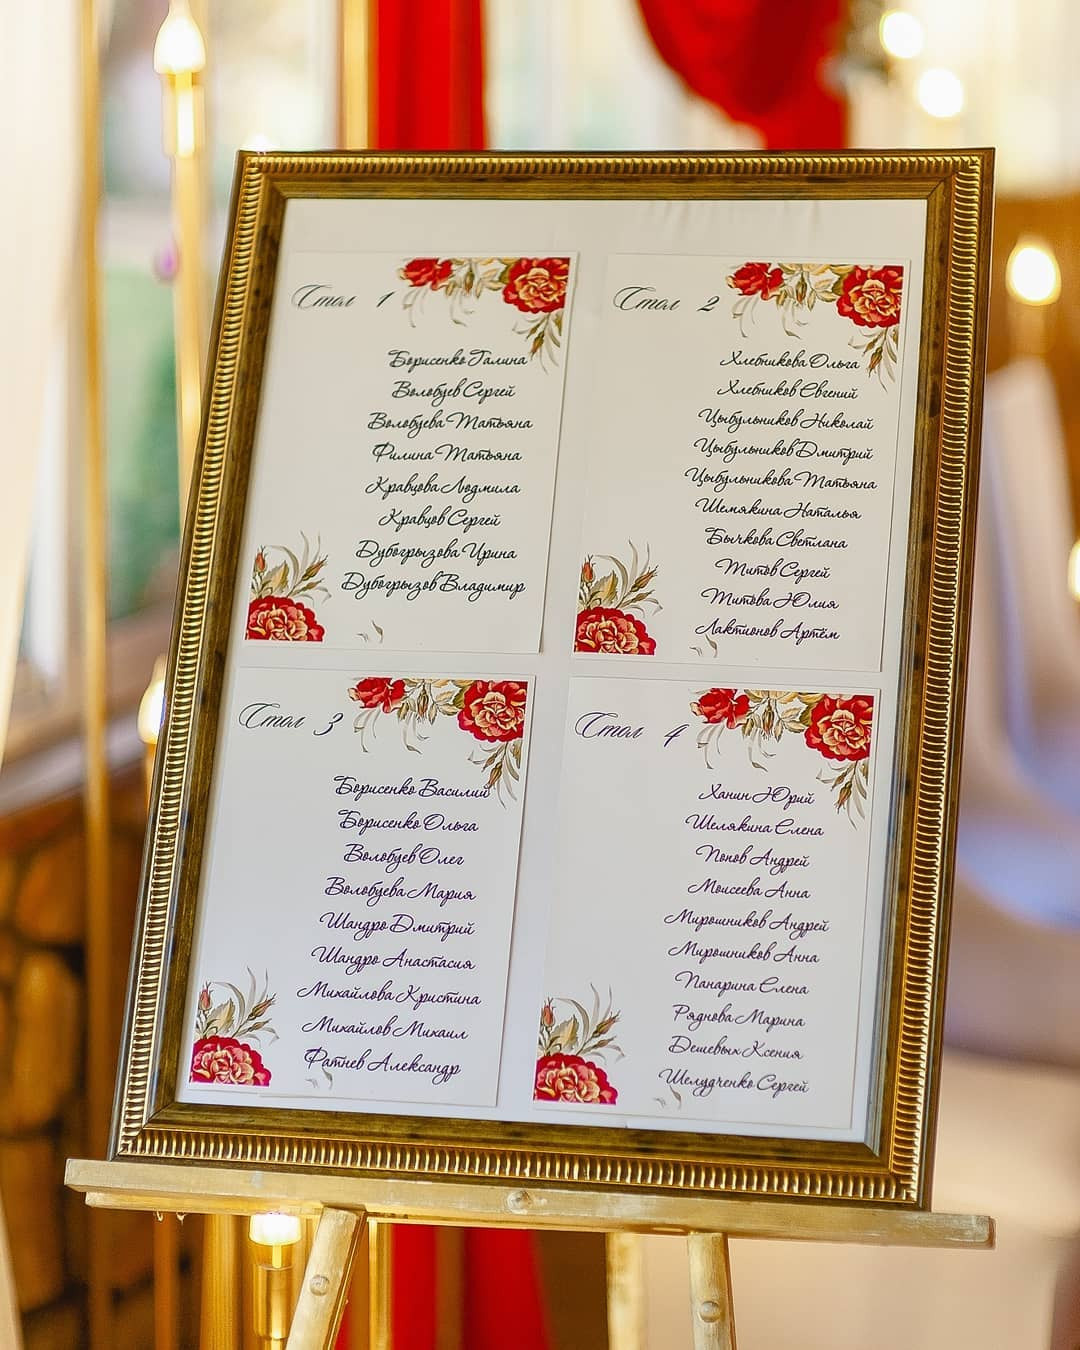 Стол 1
Борисенко Галина
Волобуев Сергей
Волобуева Татьяна
Филина Татьяна
Кравцова Людмила
Кравцов Сергей
Дубогрызова Ирина
Дубогрызов Владимир
Стол 2
Хлебникова Ольга
Хлебников Евгений
Цыбульников Николай
Цыбульников Дмитрий
Цыбульникова Татьяна
Шемякина Наталья
Бычкова Светлана
Титов Сергей
Титова Юлия
Лактионов Артём
Стол 3
Борисенко Василий
Борисенко Ольга
Волобуев Олег
Волобуева Мария
Шандро Дмитрий
Шандро Анастасия
Михайлова Кристина
Михайлов Михаил
Фатнев Александр
Стол 4
Ханин Юрий
Шелякина Елена
Попов Андрей
Моисеева Анна
Мирошников Андрей
Мирошников Анна
Панарина Елена
Ряднова Марина
Дешевых Ксения
Шелудченко Сергей